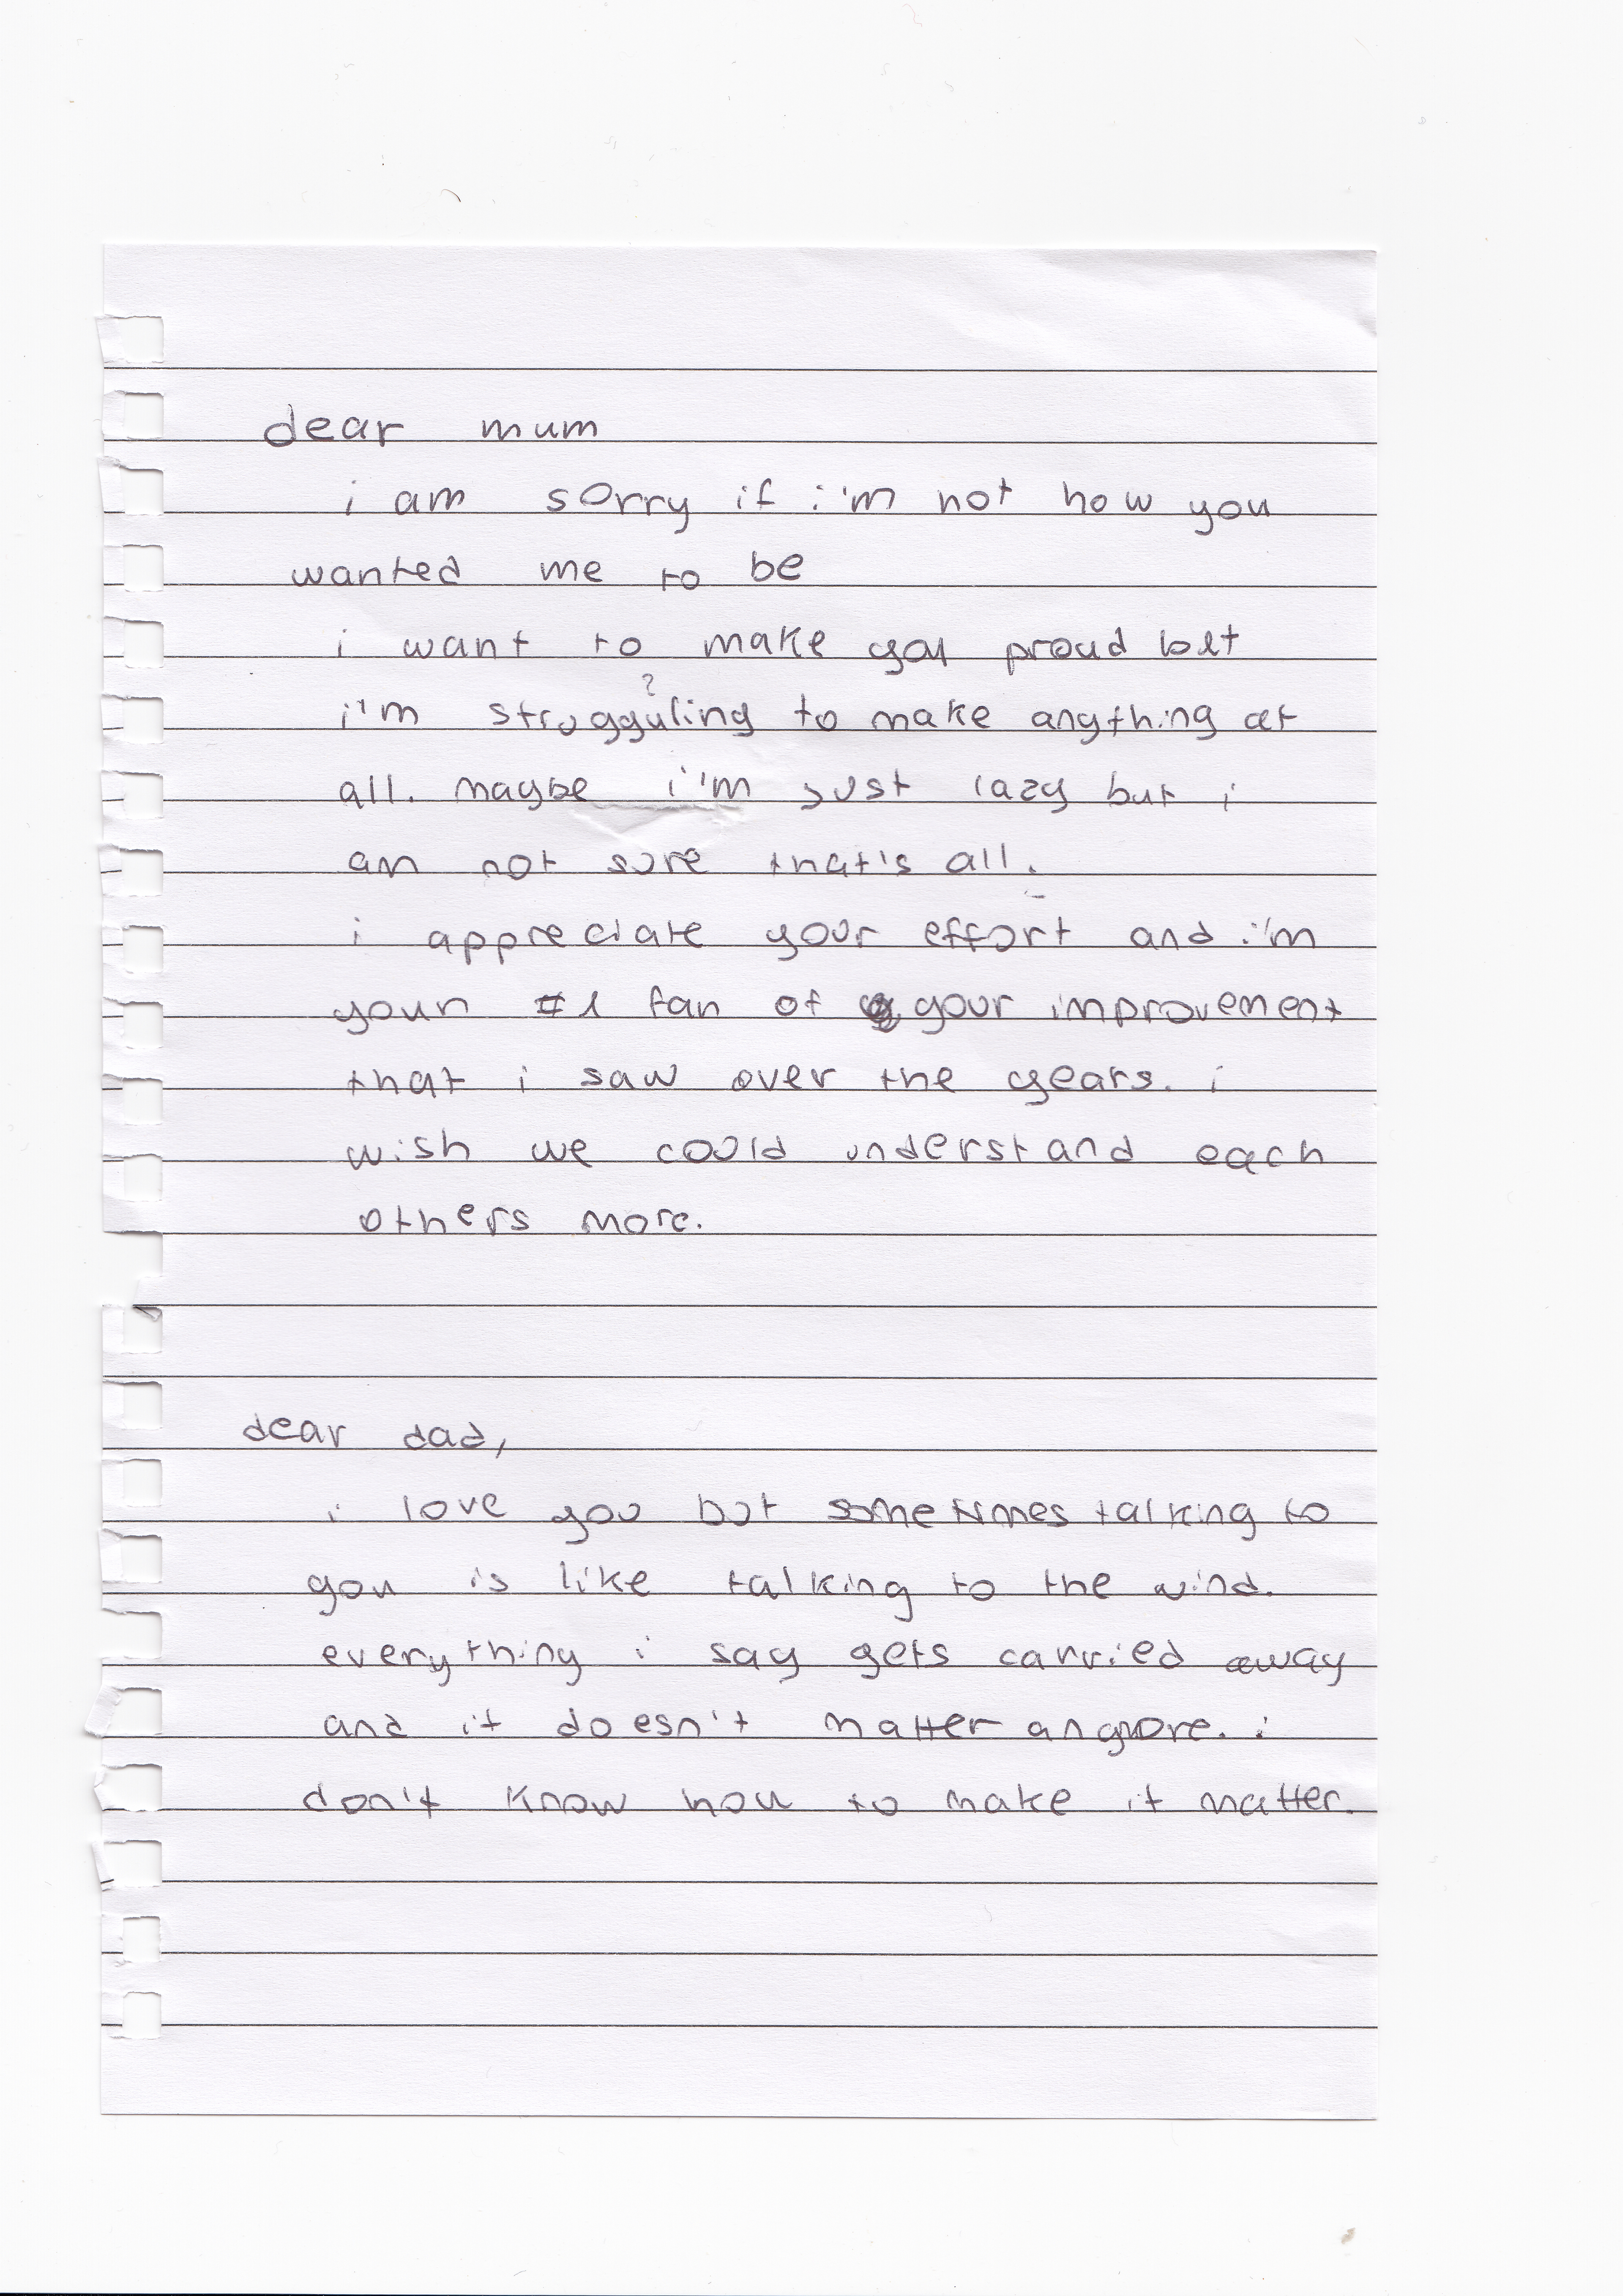 dear mum
i am sorry if i'm not how you
wanted me to be
i want to make you proud but
?
i'm strugguling to make anything at
all. maybe i'm just lazy but i
am not sure that's all.
i appreciate your effort and i'm
your #1 fan of your improvement
that i saw over the years. i
wish we could understand each
others more.
dear dad,
i love you but sometimes talking to
you is like talking to the wind.
everything i say gets carried away
and it doesn't matter anymore. i
don't know how to make it matter.